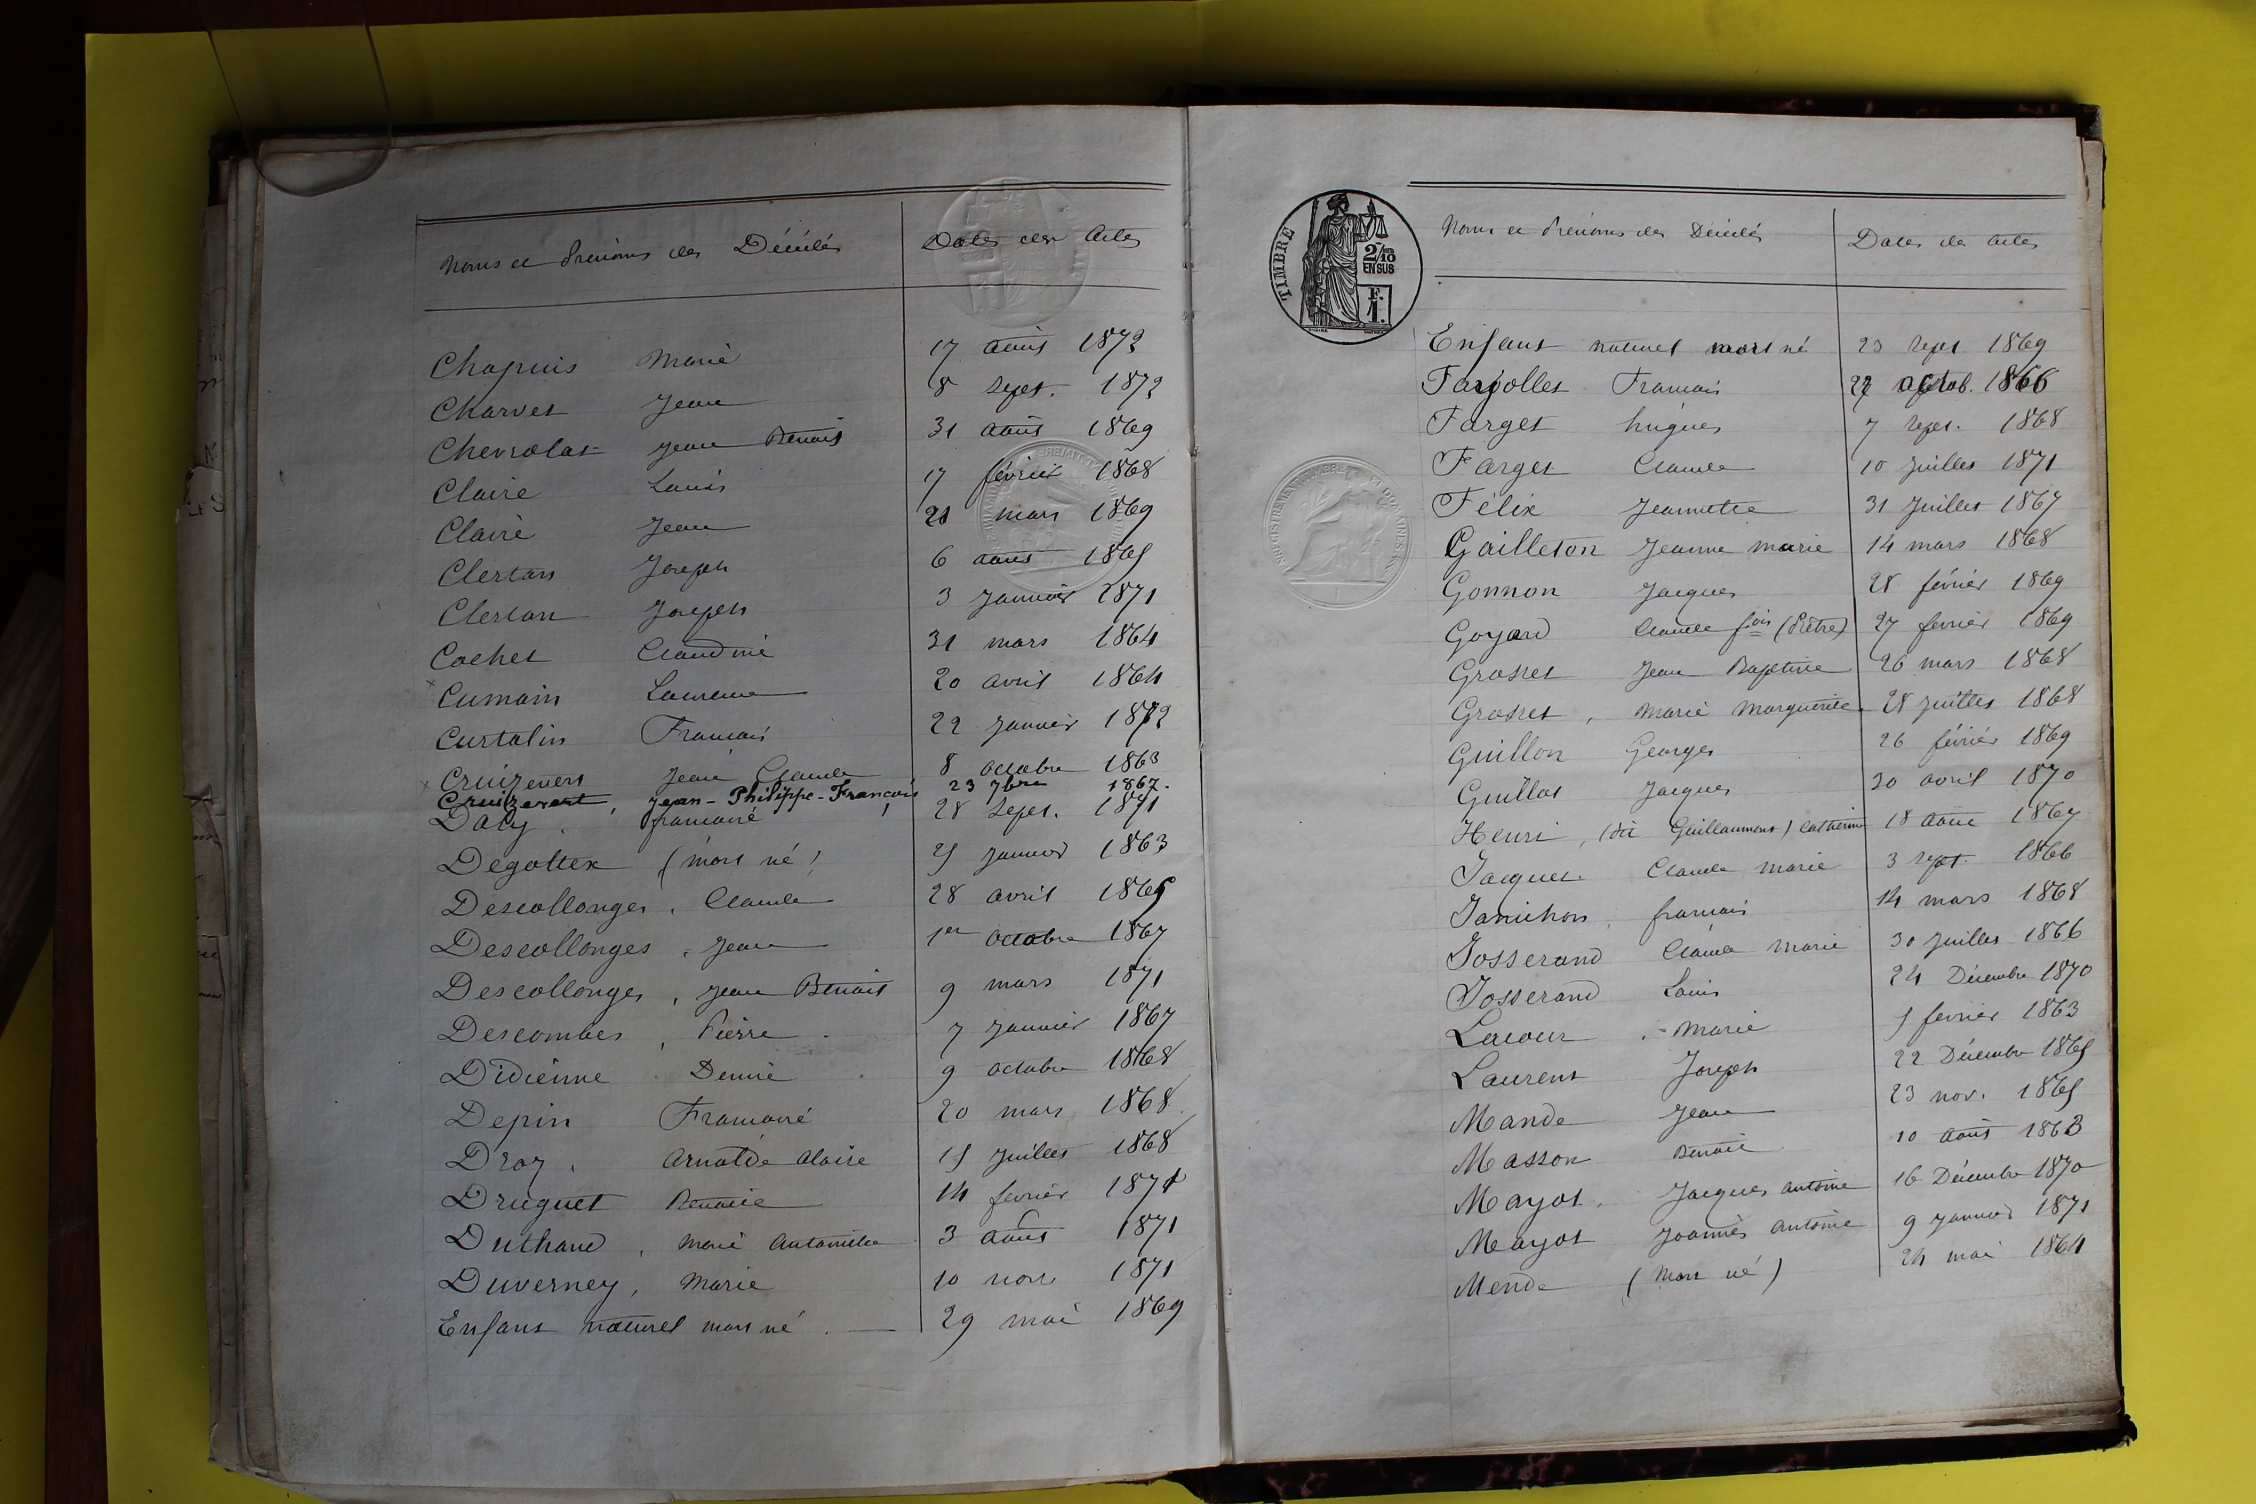 Noms et Prénoms des Décédés Dates des Actes
Chapuis Marie 17 août 1872
Charvet Jean 8 Sept. 1872
Chevrolat Jean Benoit 31 août 1869
Claire Louis 17 février 1868
Claire Jean 21 mars 1869
Clertan Joseph 6 août 1865
Clertan Joseph 3 Janvier 1871
Cochet Claudine 31 mars 1864
Cumain Laurence 20 avril 1864
Curtalin Francois 22 Janvier 1872
Cruizevert Jean Claude 8 octobre 1863
Cruizevert, Jean-Philippe-Francois 23 7bre 1867.
Daly, francoise 28 Sept. 1871
Degottex (mort né) 25 Janvier 1863
Descollonges, Claude 28 avril 1865
Descollonges, Jean 1er octobre 1867
Descollonges, Jean Benoit 9 mars 1871
Descombes, Pierre 7 Janvier 1867
Didienne Denise 9 octobre 1868
Depin Francoise 20 mars 1868
Droz, Arnolde Aloise 15 Juillet 1868
Druguet Benoite 14 février 1871
Duthand, Marie Antoinette 3 août 1871
Duverney, Marie 10 nov. 1871
Enfant naturel mort né 29 mai 1869
TIMBRE
2/10
EN SUS
F.
1.
Noms et Prénoms des Décédés Dates des actes
Enfant naturel mort né 23 Sept 1869
Fayolles Francois 27 octob. 1866
Farget hugues 7 Sept. 1868
Farget Claude 10 Juillet 1871
Félix Jeannette 31 Juillet 1867
Gailleton Jeanne marie 14 mars 1868
Gonnon Jacques 28 février 1869
Goyard Claude fois (Prêtre) 27 fevrier 1869
Grosset Jean Baptiste 26 mars 1868
Grosset, Marie Marguerite 28 Juillet 1868
Guillon Georges 26 février 1869
Guillot Jacques 30 avril 1870
Henri, (dit Guillaumont) Catherine 18 août 1867
Jacquet Claude marie 3 Sept. 1866
Janichon, francois 14 mars 1868
Josserand Claude Marie 30 Juillet 1866
Josserand Louis 24 Décembre 1870
Lacour Marie 5 fevrier 1863
Laurent Joseph 22 Décembre 1865
Mande Jean 23 nov. 1865
Masson Benoit 10 août 1863
Mayot Jacques Antoine 16 Décembre 1870
Mayot Joannès Antoine 9 Janvier 1871
Mende (Mort né) 24 mai 1864